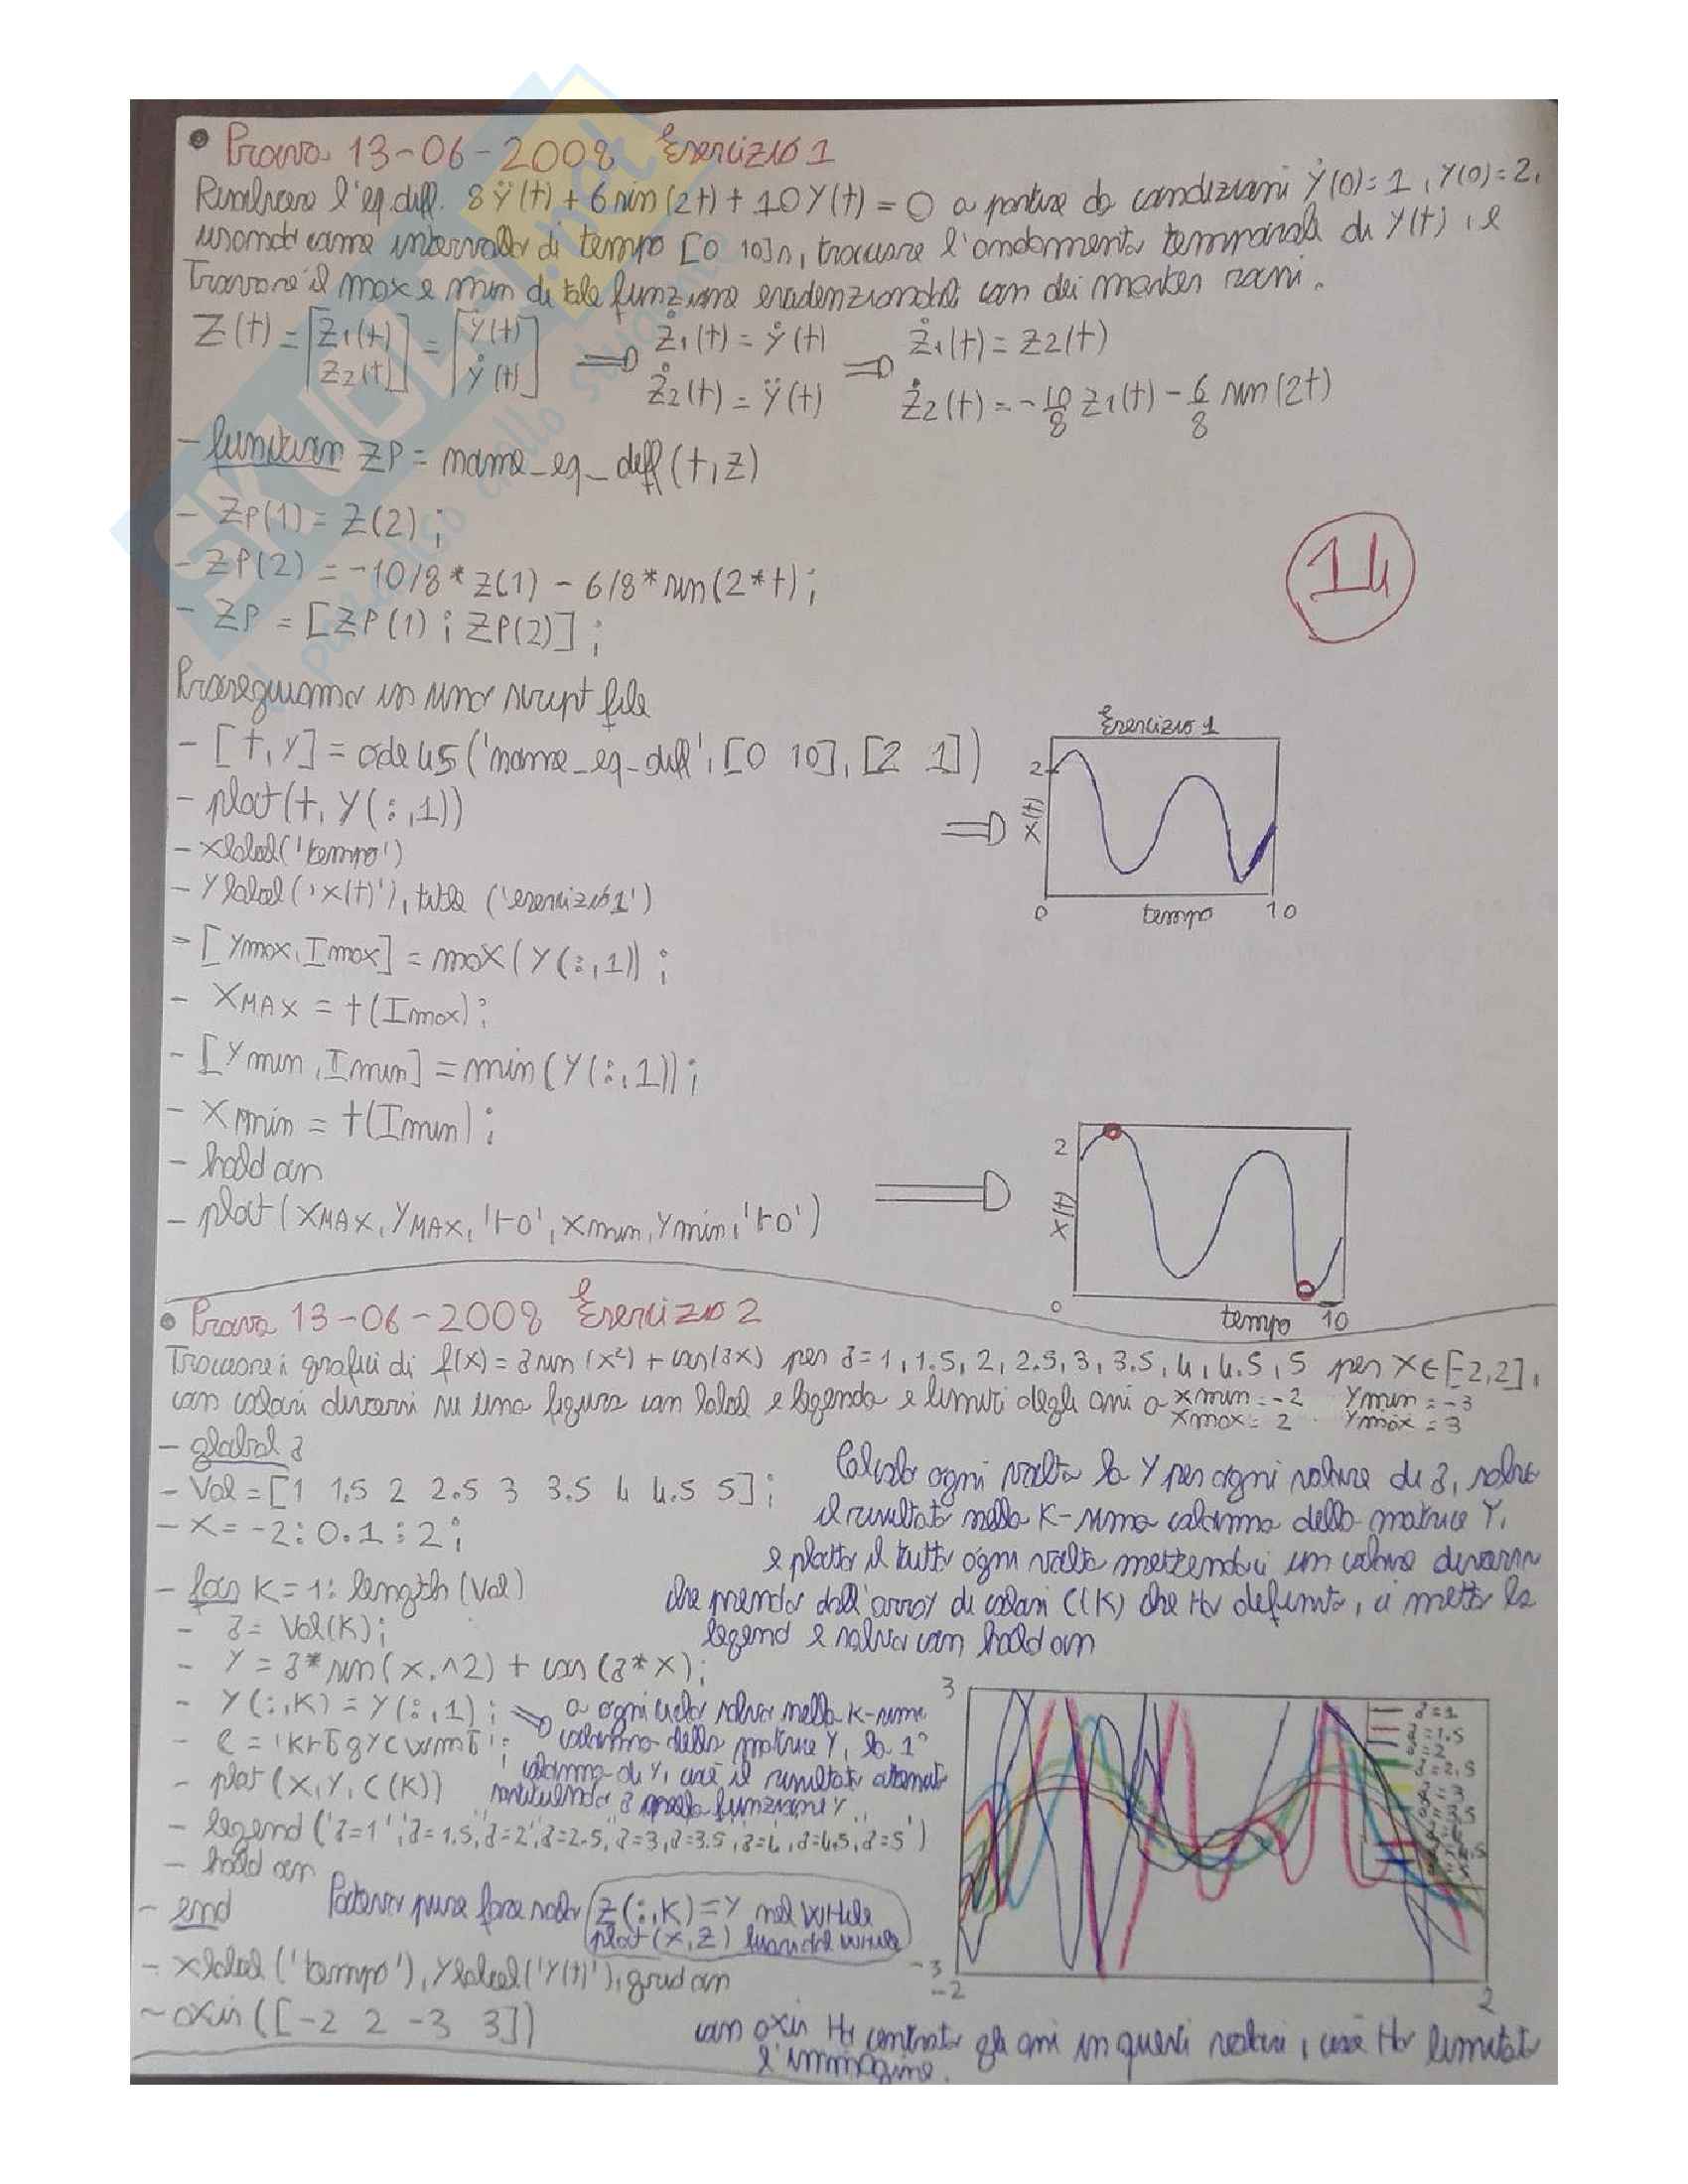 Prova 13-06-2008 Esercizio 1
Risolvere l'eq. diff. 8ÿ(t) + 6 sin(2t) + 10 y(t) = 0 a partire da condizioni ẏ(0)=1, y(0)=2,
usando come intervallo di tempo [0 10]s, tracciare l'andamento temporale di y(t), e
Trovare il max e min di tale funzione evidenziandoli con dei marker rossi.
Z(t) = [Z1(t) Z2(t)] = [y(t) ẏ(t)] ⇒ Ż1(t) = ẏ(t) ⇒ Ż1(t) = Z2(t)
Ż2(t) = ÿ(t) Ż2(t) = -10/8 Z1(t) - 6/8 sin(2t)
- function ZP = nome_eq_diff(t,z)
- ZP(1) = Z(2);
- ZP(2) = -10/8*z(1) - 6/8*sin(2*t);
- ZP = [ZP(1); ZP(2)];
14
Proseguiamo in uno script file
- [t,y] = ode45('nome_eq_diff',[0 10],[2 1])
- plot(t,y(:,1))
- xlabel('tempo')
- ylabel('x(t)'), title('esercizio1')
- [Ymax,Imax] = max(Y(:,1));
- XMAX = t(Imax);
- [Ymin,Imin] = min(Y(:,1));
- Xmin = t(Imin);
- hold on
- plot(XMAX,YMAX,'ro',Xmin,Ymin,'ro')
Esercizio 1
2
x(t)
0 tempo 10
2
x(t)
0 tempo 10
Prova 13-06-2008 Esercizio 2
Tracciare i grafici di f(x) = a sin(x²) + cos(ax) per a=1, 1.5, 2, 2.5, 3, 3.5, 4, 4.5, 5 per x∈[-2,2],
con colori diversi su una figura con label e legenda e limiti degli assi a xmin=-2 Ymin=-3
xmax=2 Ymax=3
- global a
- Val = [1 1.5 2 2.5 3 3.5 4 4.5 5];
- X = -2:0.1:2;
- for K=1:length(Val)
- a = Val(K);
- Y = a*sin(x.^2) + cos(a*x);
- Y(:,K) = Y(:,1);
- plot(X,Y,C(K))
- legend('a=1','a=1.5','a=2','a=2.5','a=3','a=3.5','a=4','a=4.5','a=5')
- hold on
- end
- xlabel('tempo'), ylabel('Y(t)'), grid on
- axis([-2 2 -3 3])
Calcolo ogni volta la Y per ogni valore di a, salvo
il risultato nella K-sima colonna della matrice Y,
e plotto il tutto ogni volta mettendoci un colore diverso
che prendo dall'array di colori C(K) che ho definito, ci metto la
legend e salvo con hold on
a ogni ciclo salva nella K-sima
colonna della matrice Y, la 1ª
colonna di Y, cioè il risultato ottenuto
sostituendo a nella funzione Y
Potevo pure fare solo Z(:,K)=Y nel while
plot(x,Z) fuori dal while
3
-3
-2
2
a=1
a=1.5
a=2.5
con axis ho centrato gli assi in questi valori, cioè ho limitato
l'immagine.